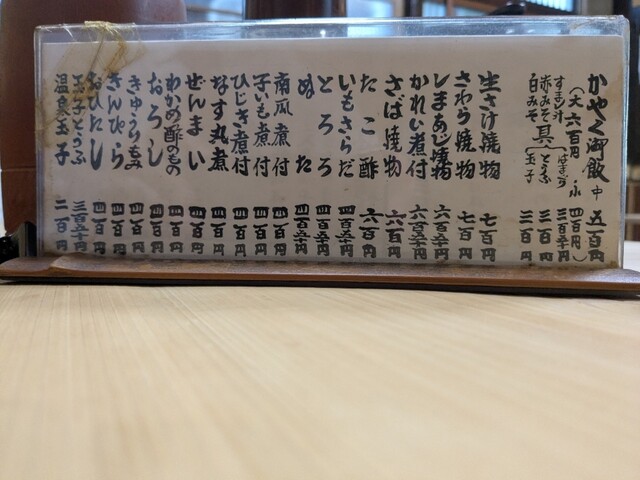 かやく御飯 中 五百円
(大 六百円 小 四百円)
すまし汁 三百五十円
赤みそ 三百円
白みそ 三百円
具 はまぐり とうふ 玉子
生さけ焼物 七百円
さわら焼物 七百円
しまあじ焼物 六百五十円
かれい煮付 六百五十円
さば焼物 六百円
たこ酢 六百円
いもさらだ 四百五十円
とろろ 四百五十円
ぬた 四百五十円
南瓜煮付 四百円
子いも煮付 四百円
ひじき煮付 四百円
なす丸煮 四百円
ぜんまい 四百円
わかめ酢のもの 四百円
おろし 四百円
きゅうりもみ 四百円
きんぴら 四百円
おひたし 四百円
玉子とうふ 三百五十円
温泉玉子 二百円